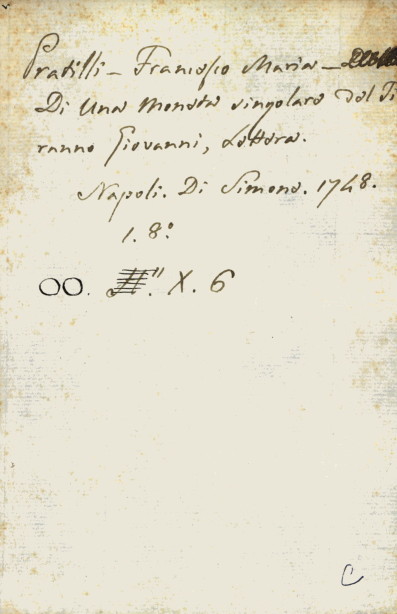 Pratilli - Francesco Maria -
Di Una Moneta singolare del Ti
ranno Giovanni, Lettera.
Napoli. Di Simone. 1748.
1. 8°
OO. X. 6
C